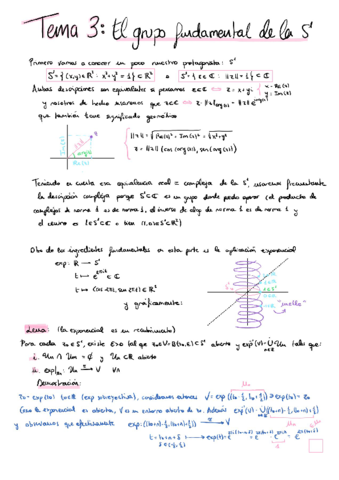 Tema 3: El grupo fundamental de la S¹
Primero vamos a conocer un poco nuestro protagonista: S¹
S¹ = {(x,y)∈ℝ²: x²+y²=1} ⊂ ℝ² o S¹ = {z∈ℂ: ||z||=1} ⊂ ℂ
Ambas descripciones son equivalentes si pensamos z∈ℂ ⟷ z = x+yi, x = Re(z) y = Im(z)
y nosotros de hecho usaremos que z∈ℂ ⟷ z = ||z||
que también tiene significado geométrico
||z|| = √(Re(z)²+Im(z)²) = √(x²+y²)
z = ||z|| (cos(arg(z)), sen(arg(z)))
Im(z)
Re(z)
arg(z)
Teniendo en cuenta esa equivalencia real - compleja de la S¹, usaremos frecuentemente
la descripción compleja porque S¹⊂ℂ es un grupo donde puedo operar (el producto de
complejos de norma 1 es de norma 1, el inverso de algo de norma 1 es de norma 1 y
el neutro es 1∈S¹⊂ℂ ↔ (1,0)∈S¹⊂ℝ²)
Otro de los ingredientes fundamentales en esta parte es la aplicación exponencial
exp: ℝ → S¹
t ↦ e^{2πit} ∈ ℂ
t ↦ (cos 2πt, sen 2πt) ∈ ℝ²
y gráficamente:
"muelle"
Lema: (la exponencial es un recubrimiento)
Para cada z₀∈S¹, existe ε>0 tal que z₀∈V=B(z₀,ε)⊂S¹ abierto y exp⁻¹(V)=⋃Uₙ tales que:
i. Uₙ ∩ Uₘ = ∅ y Uₙ⊂ℝ abierto
ii. exp|Uₙ: Uₙ → V ∀n
Demostración:
z₀ = exp(t₀) t₀∈ℝ (exp sobreyectiva), consideramos entonces V = exp((t₀-½, t₀+½)) ∋ exp(t₀) = z₀
(como la exponencial es abierta, V es un entorno abierto de z₀. Además exp⁻¹(V) = ⋃((t₀+n)-½, (t₀+n)+½)
y observamos que efectivamente exp: ((t₀+n)-½, (t₀+n)+½) → V